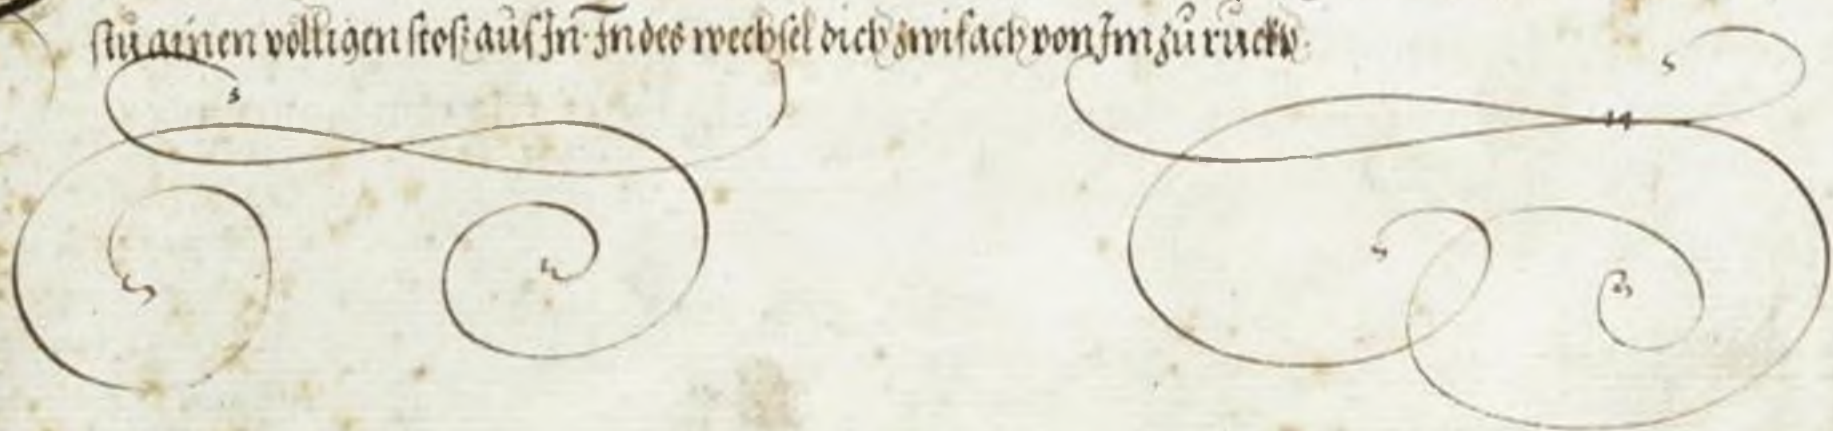 stu ainen völligen stoß auf In· Indes wechsel dich zwifach von Im zu ruckh·